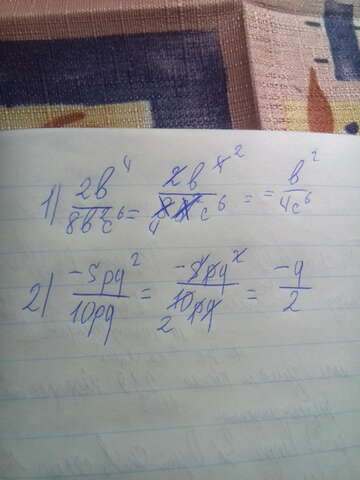 1) 2b⁴/8b²c⁶ = 2b⁴ ²/8b²c⁶ 4 = = b²/4c⁶
2) -5pq²/10pq = -5pq²/10pq 2 = -q/2